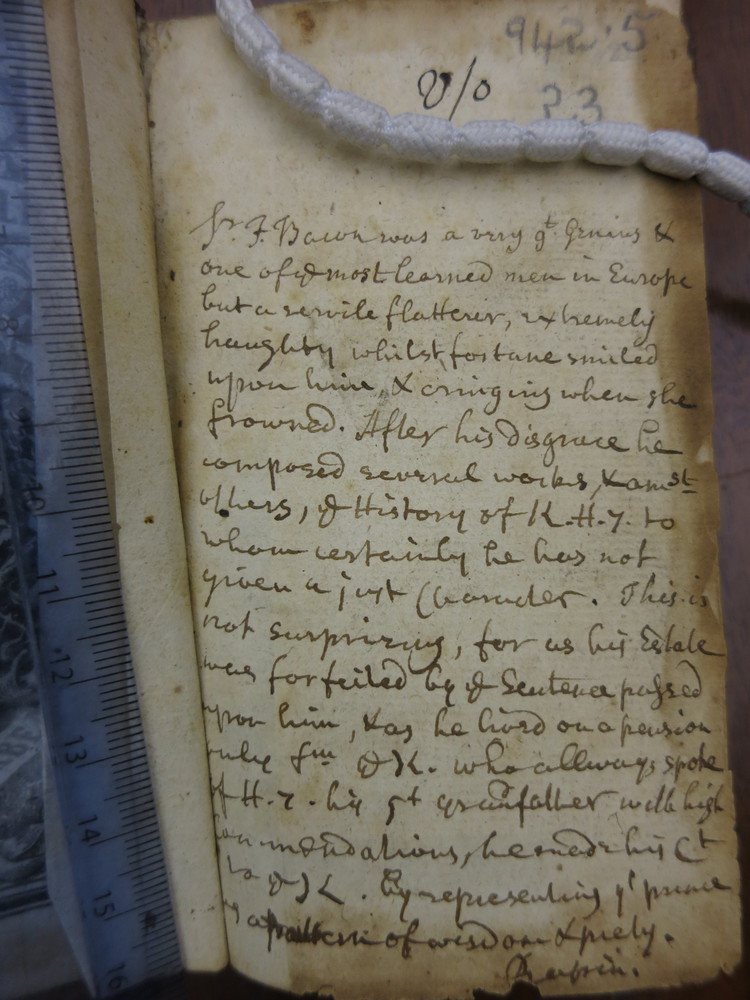 942.5
V/o 23
Sr. F. Bacon was a very gt. Genius &
one of ye most learned men in Europe
but a servile flatterer, extremely
haughty whilst fortune smiled
upon him, & cringing when she
frowned. After his disgrace he
composed several works, & amst
others, ye History of K. H. 7. to
whom certainly he has not
given a just Character. This is
not surprizing, for as his Estate
was forfeited by ye Sentence passed
upon him, & as he lived on a pension
only fm ye K. who allways spoke
of H. 7. his gt grandfather with high
commendations, he made his Ct
to ye K. By representing yt prince
as a pattern of wisdom & piety.
Rapin.
10
11
12
13
14
15
16